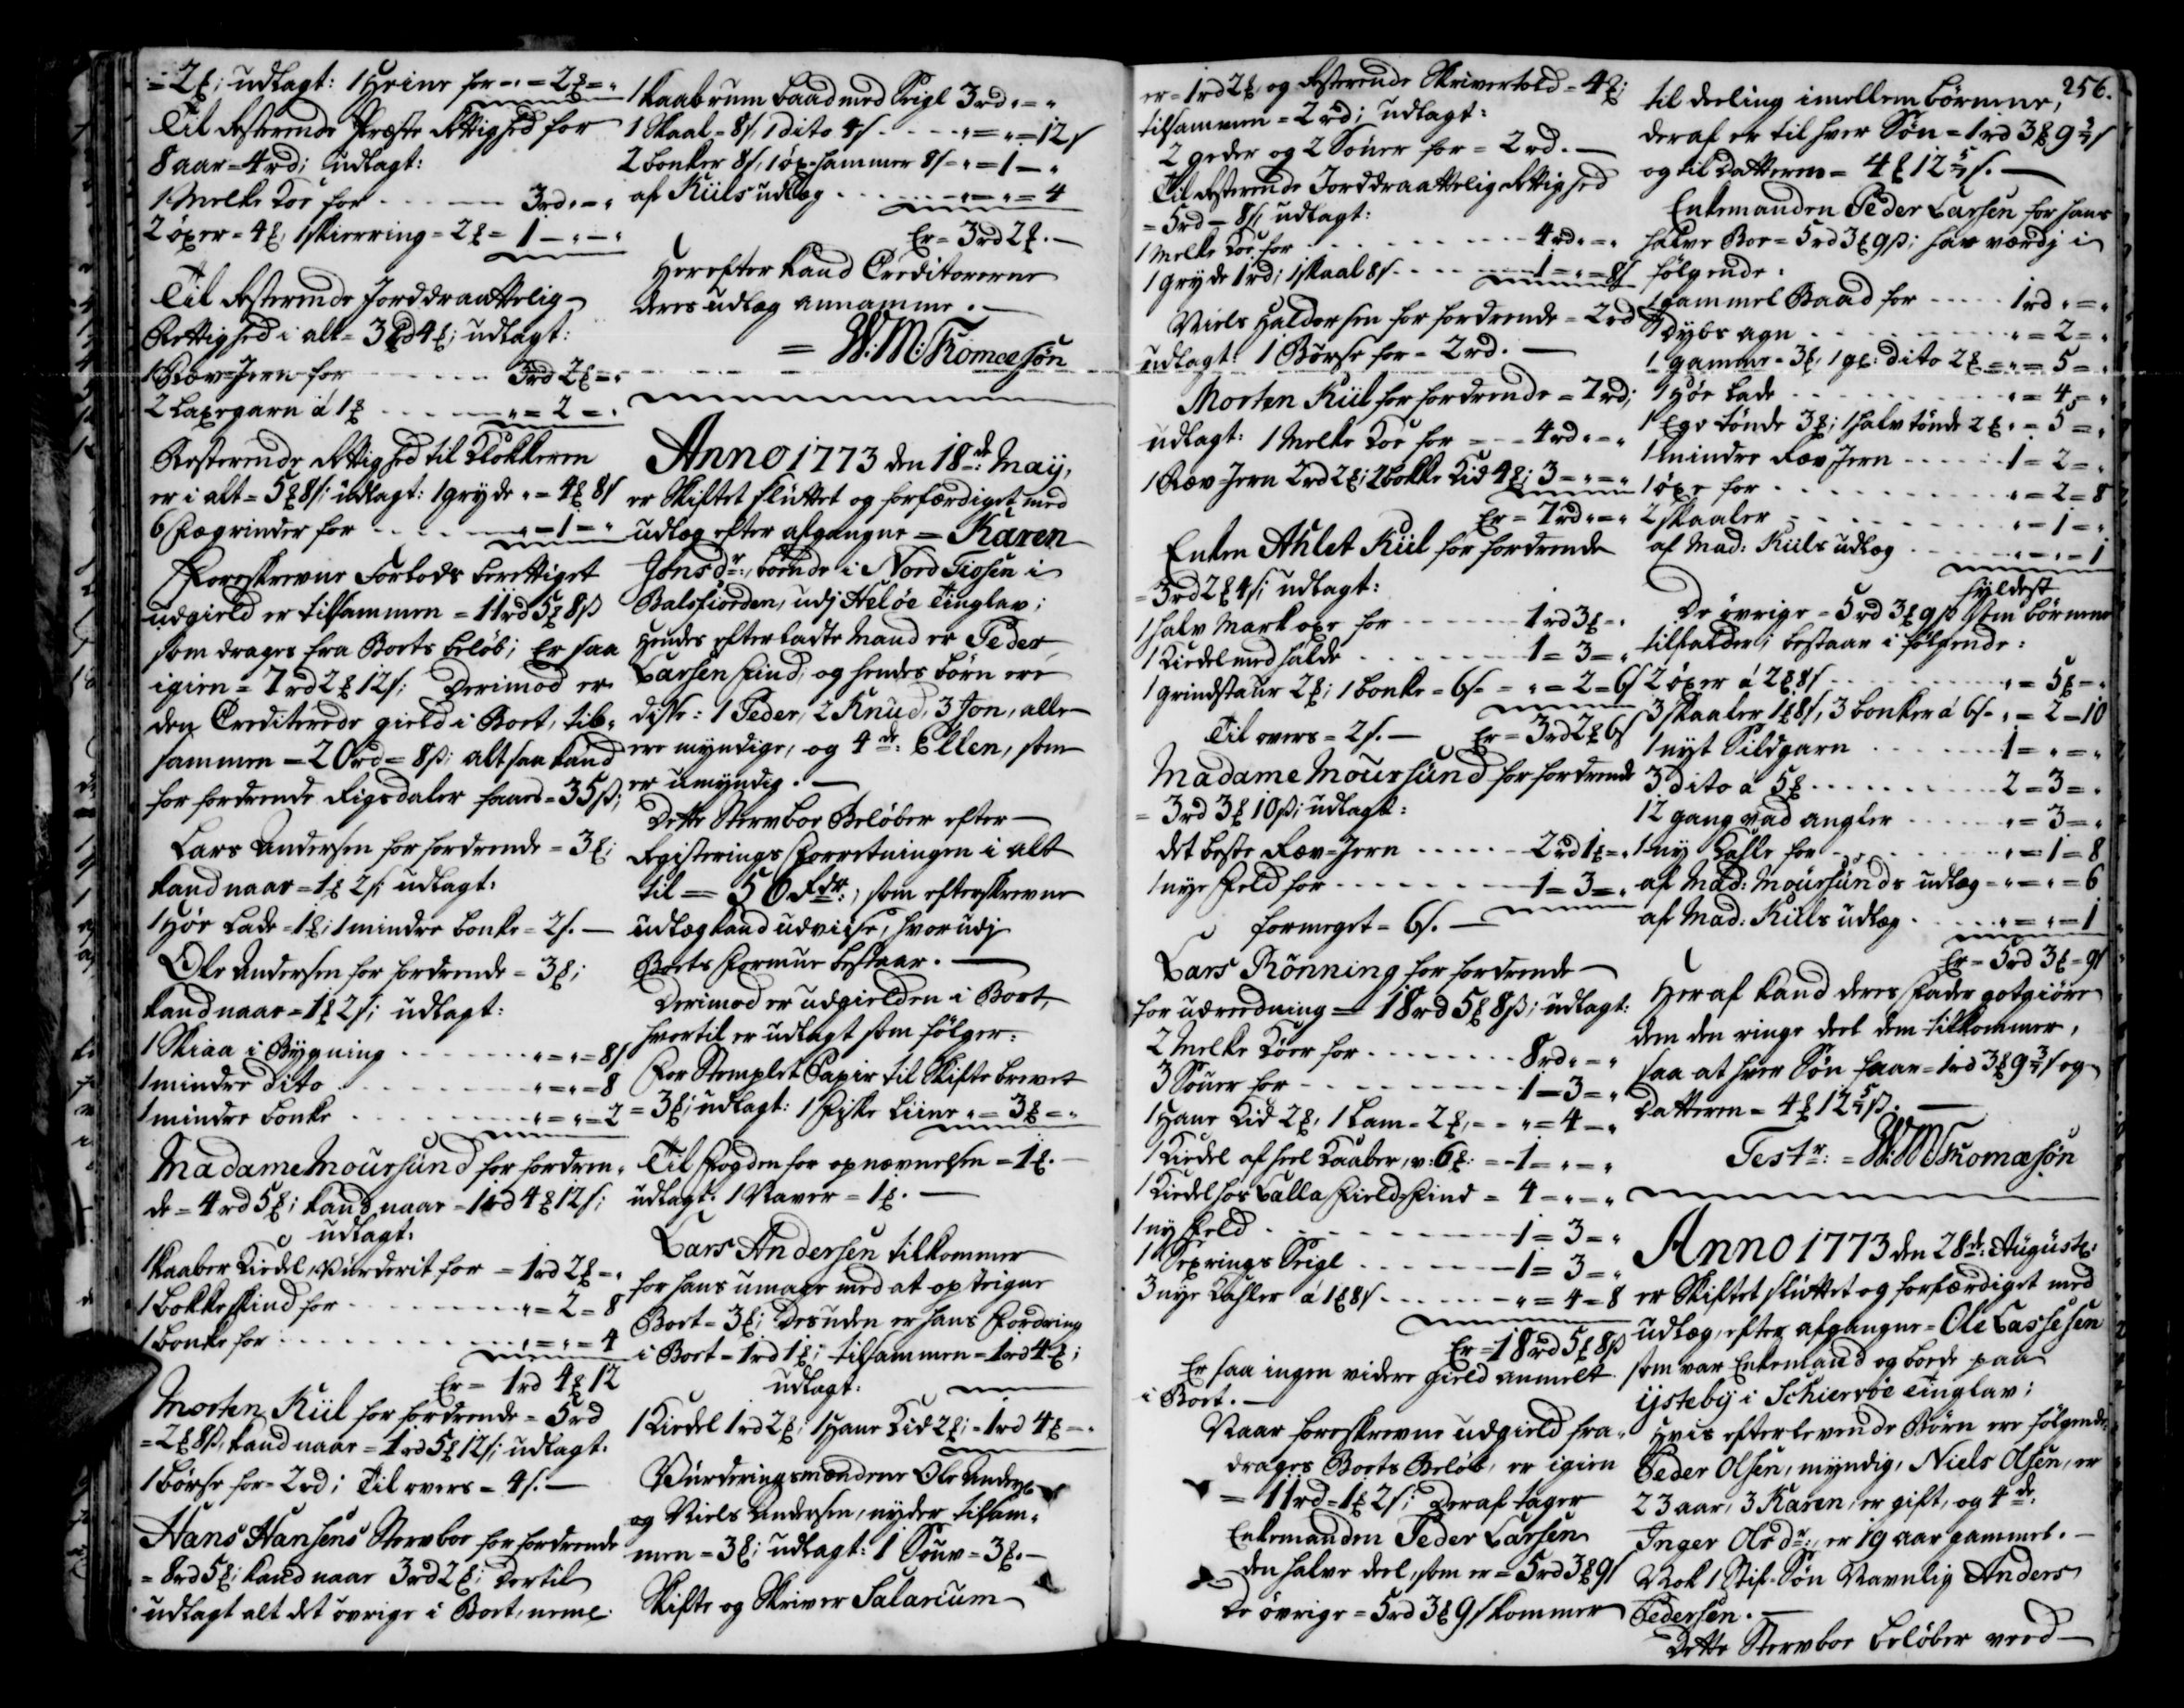 = 2 ₻; udlagt: 1 Heine for - " = 2 ₻ = "
Til Resterende Præste Rettighed for
8 aar = 4 rd; udlagt:
1 Melke Koe for - - - - - 3 rd " = "
2 øxer = 4 ₻, 1 skierring = 2 ₻ = 1 - " - "
Til Resterende Jorddraattelig
Rettighed i alt = 3 rd 4 ₻; udlagt:
1 Ræv=Jern for - - - - - 3 rd 2 ₻ = "
2 Laxegarn á 1 ₻ - - - - " = 2 = "
Resterende Rettighed til Klokkeren
er i alt = 5 ₻ 8 s; udlagt: 1 gryde " = 4 ₻ 8 s
6 Fægrinder for - - - - " = 1 = "
Foreskrevne Forlods berettiget
udgield er tilsammen = 11 rd 5 ₻ 8 ß
som drages fra Boets beløb; Er saa
igien = 7 rd 2 ₻ 12 s; Derimod er
den Crediterede gield i Boet, til-
sammen = 20 rd = 8 ß; altsaa kand
for fordrende Rigsdaler faaes = 35 ß;
Lars Andersen for fordrende = 3 ₻;
kand naae = 1 ₻ 2 s; udlagt:
1 Høe Lade = 1 ₻; 1 mindre bonke = 2 s. -
Ole Andersen for fordrende = 3 ₻;
kand naae = 1 ₻ 2 s; udlagt:
1 Skiaa i Bygning - - - - " = " = 8 s
1 mindre dito - - - - " = " = 8
1 mindre bonke - - - - " = " = 2
Madame Moursund for fordren-
de = 4 rd 5 ₻; kand naae = 1 rd 4 ₻ 12 s;
udlagt:
1 Kaaber Kiedel, Vurderit for = 1 rd 2 ₻ = "
1 Bokkeskind for - - - - " = 2 = 8
1 bonke for - - - - " = " = 4
Er = 1 rd 4 ₻ 12
Morten Kiil for fordrende = 5 rd
= 2 ₻ 8 ß, kand naae = 1 rd 5 ₻ 12 s; udlagt.
1 Børse for = 2 rd; Til overs = 4 s. -
Hans Hansens Stervboe for fordrende
= 8 rd 5 ₻; kand naae 3 rd 2 ₻; Dertil
udlagt alt det øvrige i Boet, neml:
1 Kaabrum baad med Seigl 3 rd " = "
1 Skaal = 8 s, 1 dito 4 s - - - - " = " = 12 s
2 bonker 8 s, 1 øx=hammer 8 s = " = 1 = "
af Kiils udlæg - - - - " = " = 4
Er = 3 rd 2 ₻. -
Herefter kand Creditorerne
deres udlæg annamme. -
= W: M: Thomæsøn
Anno 1773 den 18de: Maÿ,
er Skiftet sluttet og forfærdiget med
udlæg efter afgangne = Karen
Jonsdr:, boende i Nord Fiosen i
Balsfiorden, udj Heløe Tinglav;
Hendes efterladte Mand er Peder
Larsen Find, og hendes børn ere
disse: 1 Peder, 2 Knud, 3 Jon, alle
ere myndige, og 4de: Ellen, som
er umyndig. -
Dette Stervboe Beløber efter
Registerings Forretningen i alt
til = 56 Rdr:; som efterskrevne
udlæg kand udviise, hvorudj
Boets Formue bestaar. -
Derimod er udgielden i Boet,
hvortil er udlagt som følger:
For Stemplet Papir til Skiftebrevet
= 3 ₻; udlagt: 1 Fiske Liine " = 3 ₻ = "
Til Fogden for opnævnelsen = 1 ₻. -
udlagt. 1 Naver = 1 ₻. -
Lars Andersen tilkommer
for hans umage med at opteigne
Boet = 3 ₻; Desuden er hans Fordring
i Boet = 1 rd 1 ₻; tilsammen = 1 rd 4 ₻;
udlagt:
1 Kiedel 1 rd 2 ₻; 1 Hane Kid 2 ₻; = 1 rd 4 ₻ - "
Vurderingsmændene Ole Anders:
og Niels Andersen, nyder tilsam-
men = 3 ₻; udlagt: 1 Souv = 3 ₻. -
Skifte og Skriver Salarium
er = 1 rd 2 ₻, og Resterende Skrivertold = 4 ₻;
tilsammen = 2 rd; udlagt:
2 geder og 2 Souer for = 2 rd. -
Til Resterende Jorddraattelig Rettighed
= 5 rd = 8 s, udlagt:
1 Melke Koe for - - - - 4 rd " = "
1 gryde 1 rd; 1 skaal 8 s - - - - 1 = " = 8 s
Niels Haldorsen for fordrende = 2 rd
udlagt: 1 Børse for = 2 rd. -
Morten Kiil for fordrende = 7 rd;
udlagt: 1 Melke Koe for - - 4 rd " = "
1 Ræv=Jern 2 rd 2 ₻; 2 bokke Kid 4 ₻; 3 = " = "
Er = 7 rd " = "
Enken Ahlet Kiil for fordrende
= 3 rd 2 ₻ 4 s; udlagt:
1 halv Mark øxe for - - - - 1 rd 3 ₻ = "
1 Kiedel med halde - - - - 1 = 3 = "
1 grindstaur 2 ₻; 1 bonke = 6 s - " = 2 = 6 s
Til overs = 2 s. - Er = 3 rd 2 ₻ 6 s
Madame Moursund for fordrende
= 3 rd 3 ₻ 10 ß; udlagt:
det beste Ræv=Jern - - - - 2 rd 1 ₻ = "
1 nye Feld for - - - - 1 = 3 = "
formeget = 6 s. -
Lars Rønning for fordrende
for udreedning = 18 rd 5 ₻ 8 ß; udlagt:
2 Melke Køer for - - - - 8 rd " = "
3 Souer for - - - - 1 = 3 = "
1 Hane Kid 2 ₻, 1 Lam = 2 ₻, - - " = 4 = "
1 Kiedel af heel Kaaber, v: 6 ₻: = 1 = " = "
1 Kiedel hos Lalla Field=Find = 4 = " = "
1 ny Feld - - - - 1 = 3 = "
1 Sexrings Seigl - - - - 1 = 3 = "
3 nye Kahler á 1 ₻ 8 s - - - - " = 4 = 8
Er = 18 rd 5 ₻ 8 ß
Er saa ingen videre gield anmelt
i Boet. -
Naar foreskrevne udgield fra-
drages Boets Beløb, er igien
= 11 rd = 1 ₻ 2 s; Deraf tager
Enkemanden Peder Larsen
den halve deel, som er = 5 rd 3 ₻ 9 s
De øvrige = 5 rd 3 ₻ 9 s kommer
256.
til deeling imellem børnene,
deraf er til hver Søn = 1 rd 3 ₻ 9 3/7 s
og til Datteren = 4 ₻ 12 5/7 s. -
Enkemanden Peder Larsen for hans
halve Boe = 5 rd 3 ₻ 9 ß; har værdj i
følgende:
1 gammel Baad for - - - - 1 rd " = "
1 Dybs agn - - - - " = 2 = "
1 gamme = 3 ₻, 1 gl: dito 2 ₻ = " = 5 = "
1 Høe Lade - - - - " = 4 = "
1 Ege tønde 3 ₻; 1 halv tønde 2 ₻ " = 5 = "
1 mindre Ræv Jern - - - - 1 = 2 = "
1 øxe for - - - - " = 2 = 8
2 skaaler - - - - " = 1 = "
af Mad: Kiils udlæg - - - - " = " = 1
fyldest
De øvrige = 5 rd 3 ₻ 9 ß som børnene
tilfalder, bestaar i følgende:
2 øxer á 2 ₻ 8 s - - - - " = 5 ₻ = "
3 skaaler 1 ₻ 8 s, 3 bonker á 6 s - " = 2 = 10
1 nyt Sildgarn - - - - 1 = " = "
3 dito á 5 ₻ - - - - 2 = 3 = "
12 gang vad angler - - - - " = 3 = "
1 ny Kahle for - - - - " = 1 = 8
af Mad: Moursunds udlæg = " = " = 6
af Mad: Kiils udlæg - - - - " = " = 1
Er = 5 rd 3 ₻ = 9 s
Heraf kand deres Fader gotgiøre
dem den ringe deel dem tilkommer,
saa at hver Søn faar = 1 rd 3 ₻ 9 3/7 s og
Datteren = 4 ₻ 12 5/7 ß. -
Testr: = W: M Thomæsøn
Anno 1773 den 28de: August:
er Skiftet sluttet og forfærdiget med
udlæg, efter afgangne = Ole Lassesen
som var Enkemand og boede paa
Ÿstebÿ i Schiervøe Tinglav;
Hvis efterlevende Børn ere følgende:
Peder Olsen, myndig, Niels Olsen, er
23 aar, 3 Karen, er gift, og 4de:
Inger Olsdr:, er 19 aar gammel. -
Nok 1 Stif-Søn Navnlig Anders
Pedersen. -
Dette Stervboe beløber ved